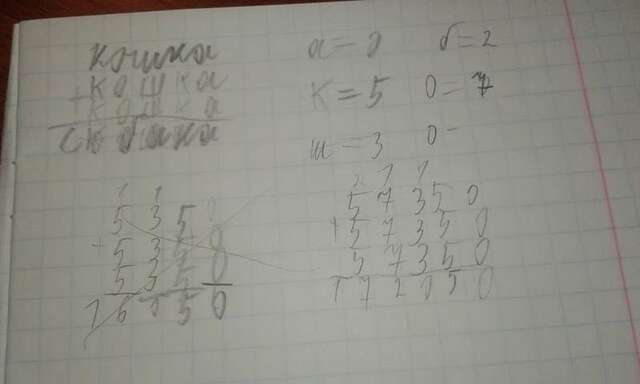 кошка
+кошка
кошка
собака
а=0 б=2
К=5 0=7
ш=3 0-
1 1
5 3 5 0
+ 5 3 5 0
5 3 5 0
0 5 0
2 1 1
5 7 3 5 0
+ 5 7 3 5 0
5 7 3 5 0
1 7 2 0 5 0